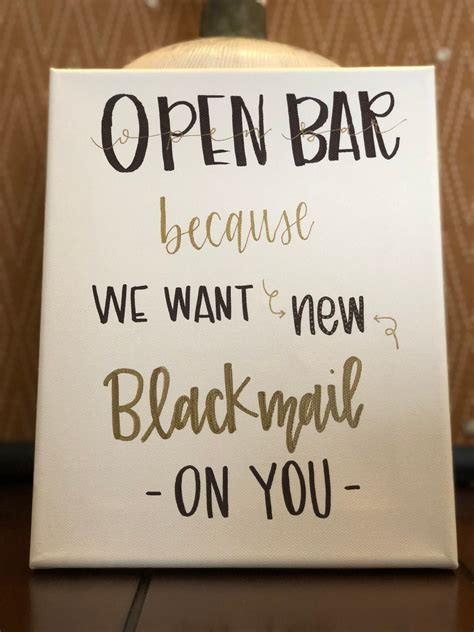 OPEN BAR
open bar
because
WE WANT new
Blackmail
- ON YOU -